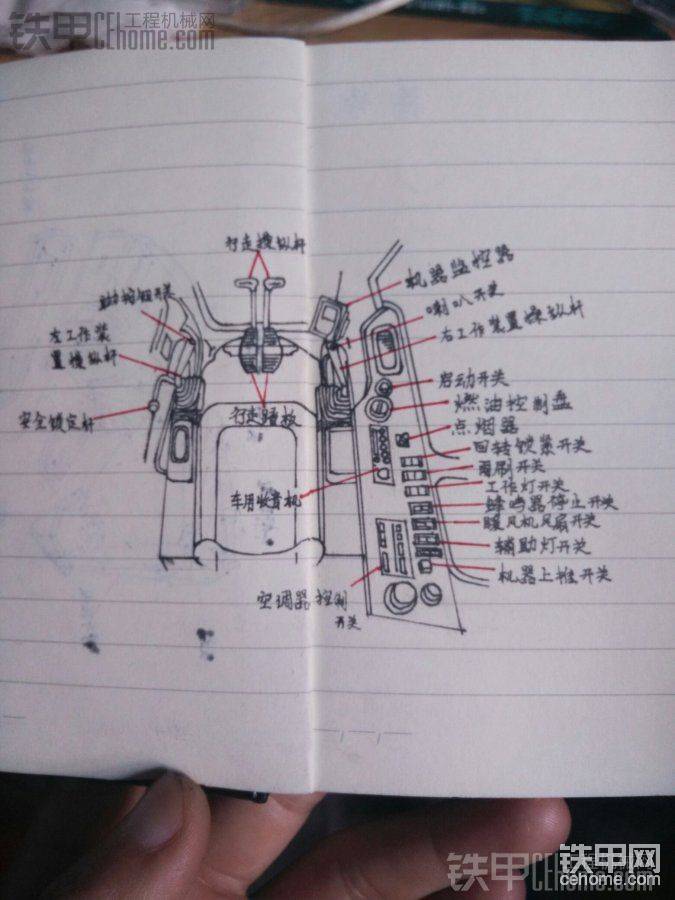 铁甲 工程机械网
CEhome.com
行走操纵杆
机器监控器
喇叭开关
左工作装
置操纵杆
右工作装置操纵杆
安全锁定杆
启动开关
燃油控制盘
行走踏板
点烟器
回转锁紧开关
雨刷开关
工作灯开关
车用收音机
蜂鸣器停止开关
暖风机风扇开关
辅助灯开关
机器上推开关
空调器控制
开关
铁甲 CEhome.com
铁甲网
cehome.com